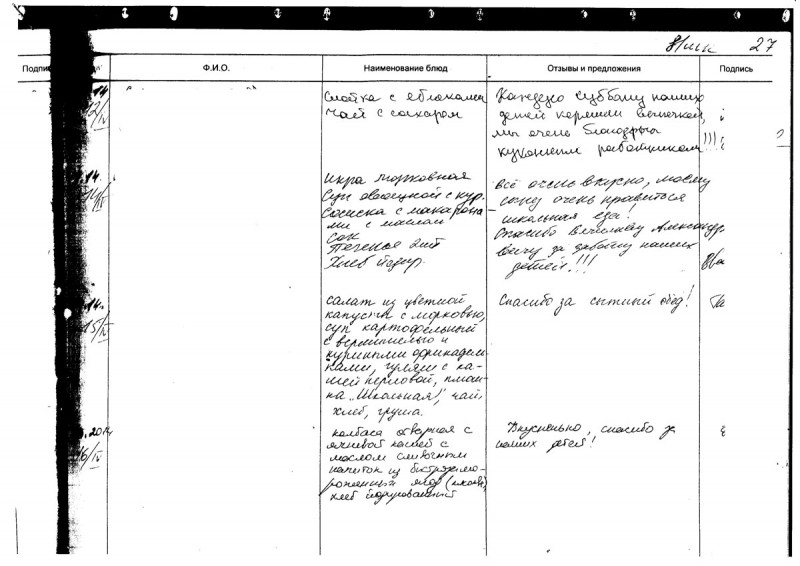 27
Ф.И.О.
Наименование блюд
Отзывы и предложения
Подпись
Слойка с яблоками
Чай с сахаром
Каждую субботу наших
детей кормили выпечкой,
мы очень благодарны
кухонным работникам!!!
12/IV
Икра морковная
Суп овощной с кур.
Сосиска с макарона
ми с маслом
Сок
Печенье 2шт
Хлеб йодир.
Всё очень вкусно, моему
сыну очень нравится
школьная еда!
Спасибо Вячеславу Александро
вичу за заботу наших
детей!!!
14/IV
салат из цветной
капусты с морковью,
суп картофельный
с вермишелью и
куриными фрикадель
ками, гуляш с ка-
шей перловой,
"Школьная", чай,
хлеб, груша.
Спасибо за сытный обед!
15/IV
колбаса отварная с
ячневой кашей с
маслом сливочным
напиток из быстрозамо-
роженных ягод
хлеб йодированный
Вкусненько, спасибо за
наших детей!
2014
16/IV